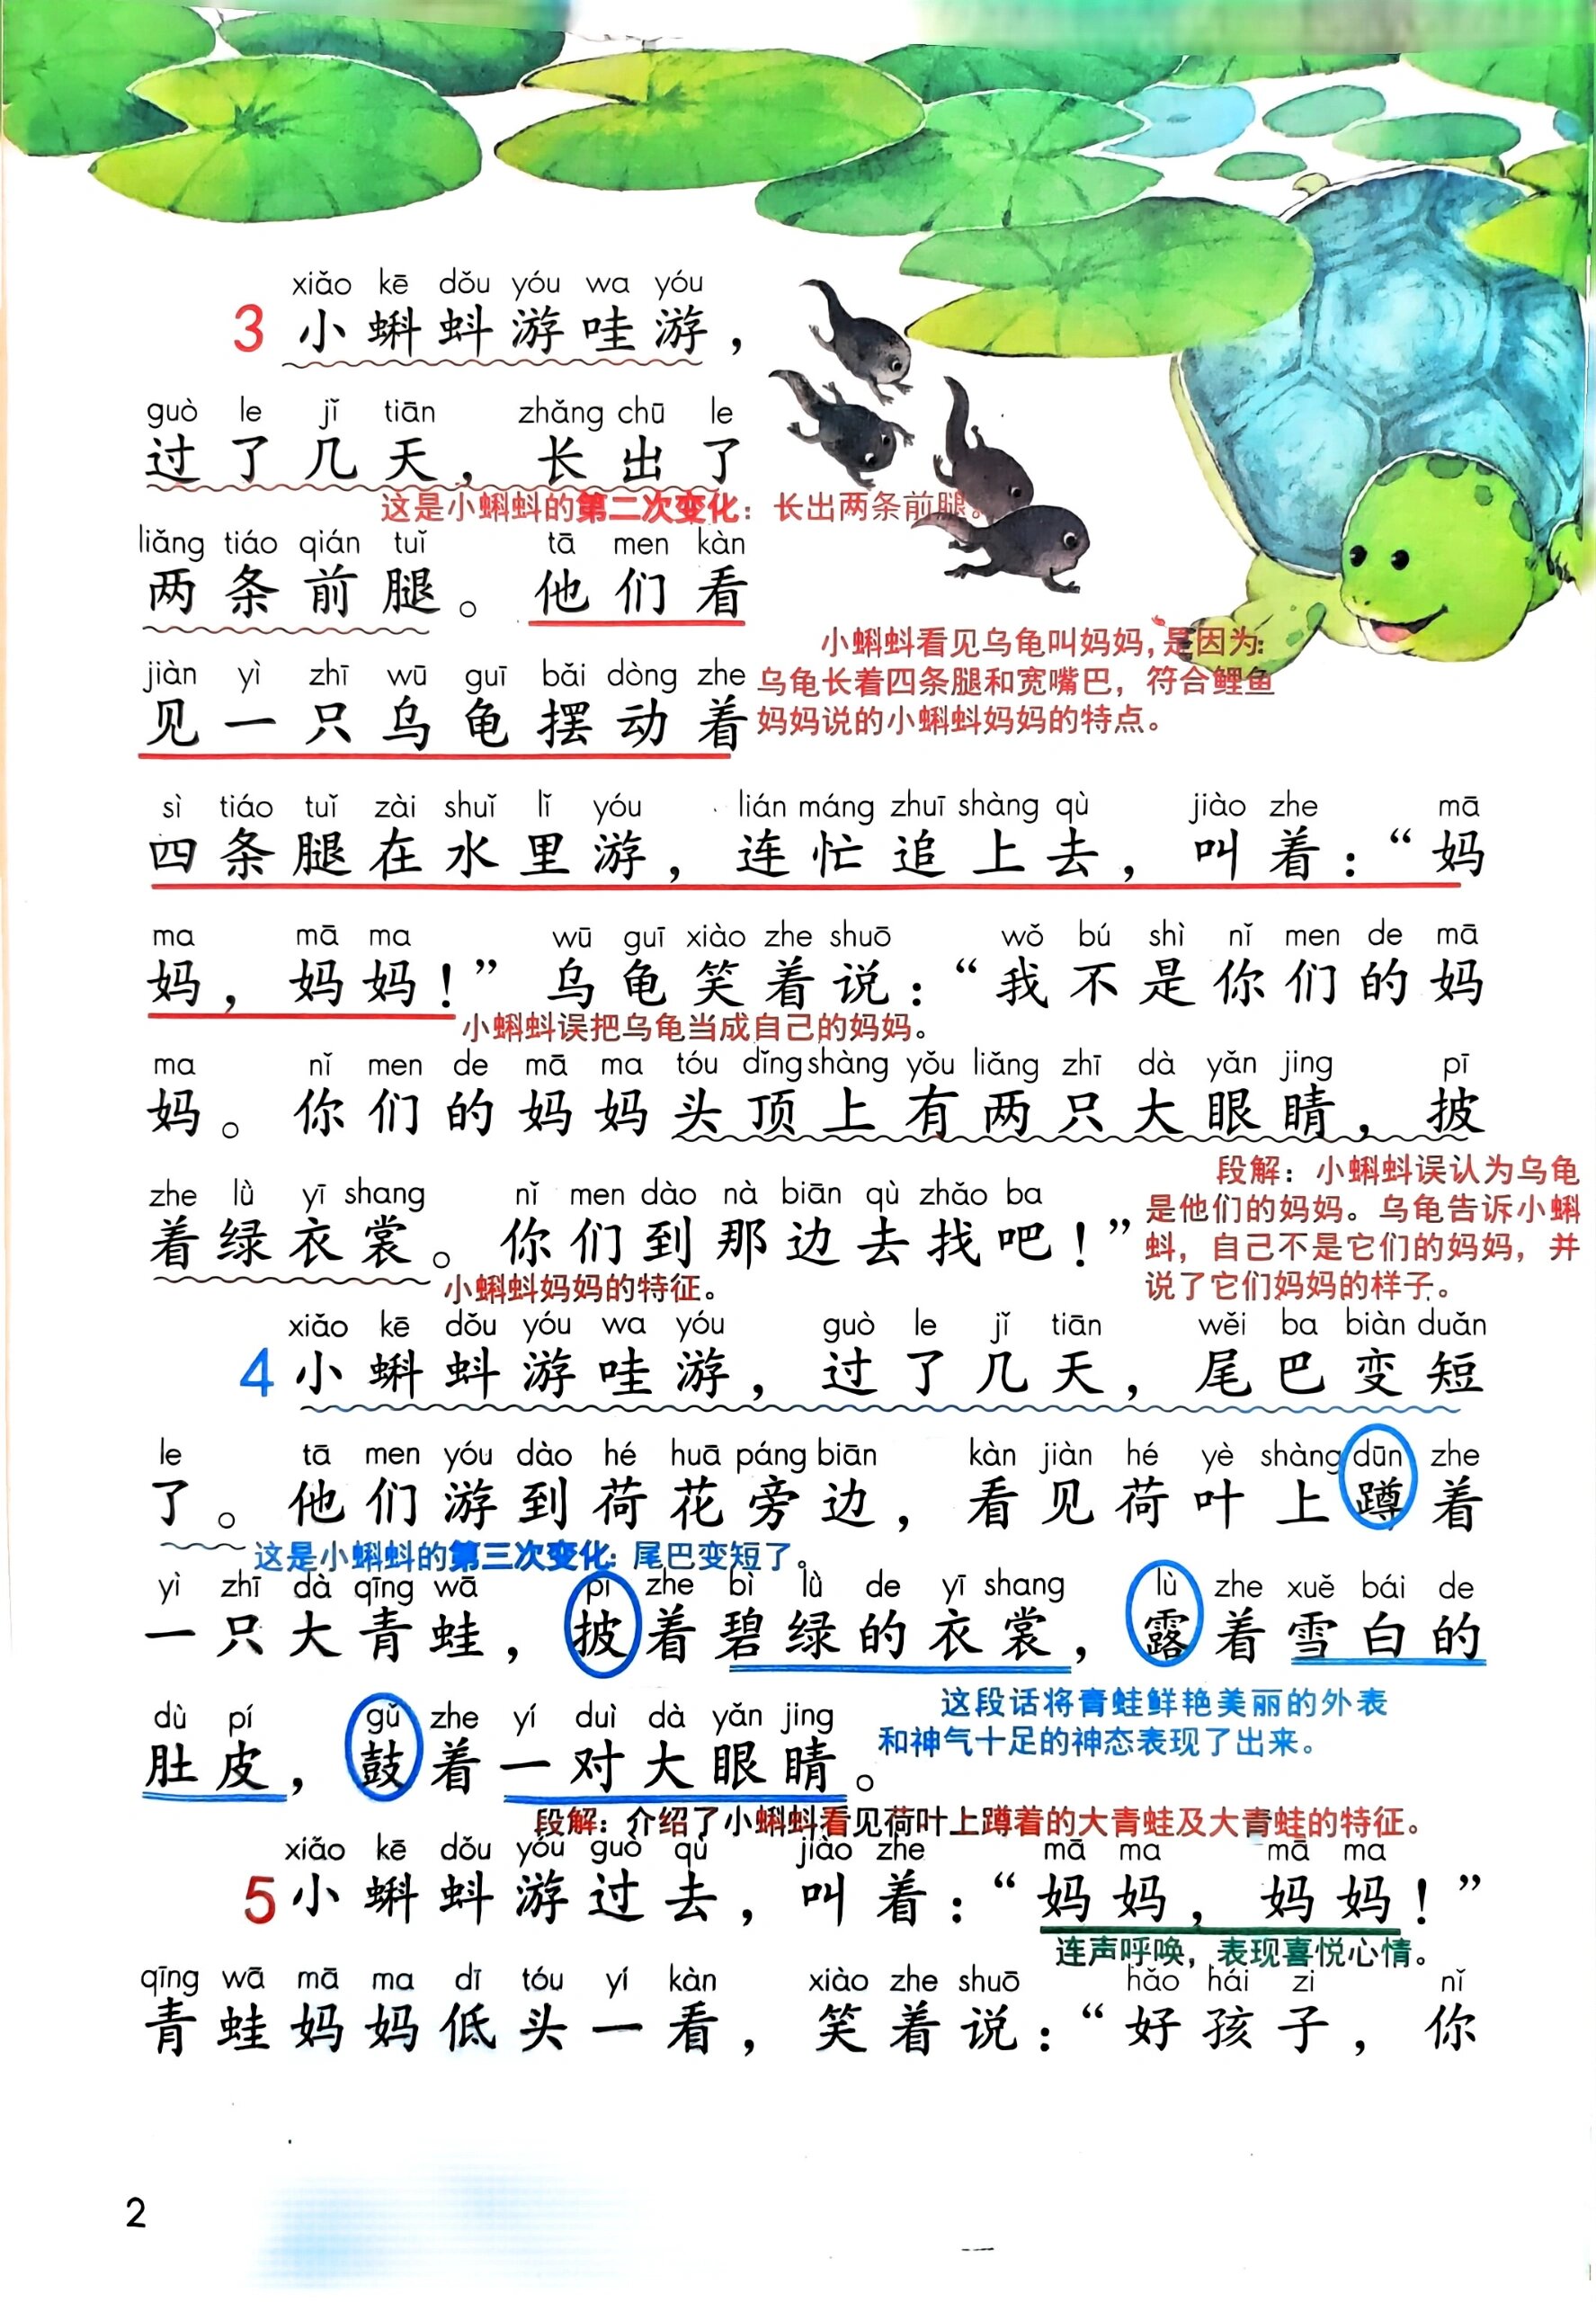 xiǎo kē dǒu yóu wa yóu
3 小蝌蚪游哇游，
guò le jǐ tiān zhǎng chū le
过了几天，长出了
这是小蝌蚪的第二次变化：长出两条前腿。
liǎng tiáo qián tuǐ tā men kàn
两条前腿。他们看
小蝌蚪看见乌龟叫妈妈，是因为：
jiàn yì zhī wū guī bǎi dòng zhe
乌龟长着四条腿和宽嘴巴，符合鲤鱼
见一只乌龟摆动着
妈妈说的小蝌蚪妈妈的特点。
sì tiáo tuǐ zài shuǐ lǐ yóu lián máng zhuī shàng qù jiào zhe mā
四条腿在水里游，连忙追上去，叫着：“妈
ma mā ma wū guī xiào zhe shuō wǒ bú shì nǐ men de mā
妈，妈妈！”乌龟笑着说：“我不是你们的妈
小蝌蚪误把乌龟当成自己的妈妈。
ma nǐ men de mā ma tóu dǐng shàng yǒu liǎng zhī dà yǎn jing pī
妈。你们的妈妈头顶上有两只大眼睛，披
zhe lǜ yī shang nǐ men dào nà biān qù zhǎo ba
着绿衣裳。你们到那边去找吧！”
段解：小蝌蚪误认为乌龟
是他们的妈妈。乌龟告诉小蝌
蚪，自己不是它们的妈妈，并
说了它们妈妈的样子。
小蝌蚪妈妈的特征。
xiǎo kē dǒu yóu wa yóu guò le jǐ tiān wěi ba biàn duǎn
4 小蝌蚪游哇游，过了几天，尾巴变短
le tā men yóu dào hé huā páng biān kàn jiàn hé yè shàng dūn zhe
了。他们游到荷花旁边，看见荷叶上蹲着
这是小蝌蚪的第三次变化：尾巴变短了。
yì zhī dà qīng wā pī zhe bì lǜ de yī shang lù zhe xuě bái de
一只大青蛙，披着碧绿的衣裳，露着雪白的
dù pí gǔ zhe yí duì dà yǎn jing
肚皮，鼓着一对大眼睛。
这段话将青蛙鲜艳美丽的外表
和神气十足的神态表现了出来。
段解：介绍了小蝌蚪看见荷叶上蹲着的大青蛙及大青蛙的特征。
xiǎo kē dǒu yóu guò qù jiào zhe mā ma mā ma
5 小蝌蚪游过去，叫着：“妈妈，妈妈！”
连声呼唤，表现喜悦心情。
qīng wā mā ma dī tóu yí kàn xiào zhe shuō hǎo hái zi nǐ
青蛙妈妈低头一看，笑着说：“好孩子，你
2